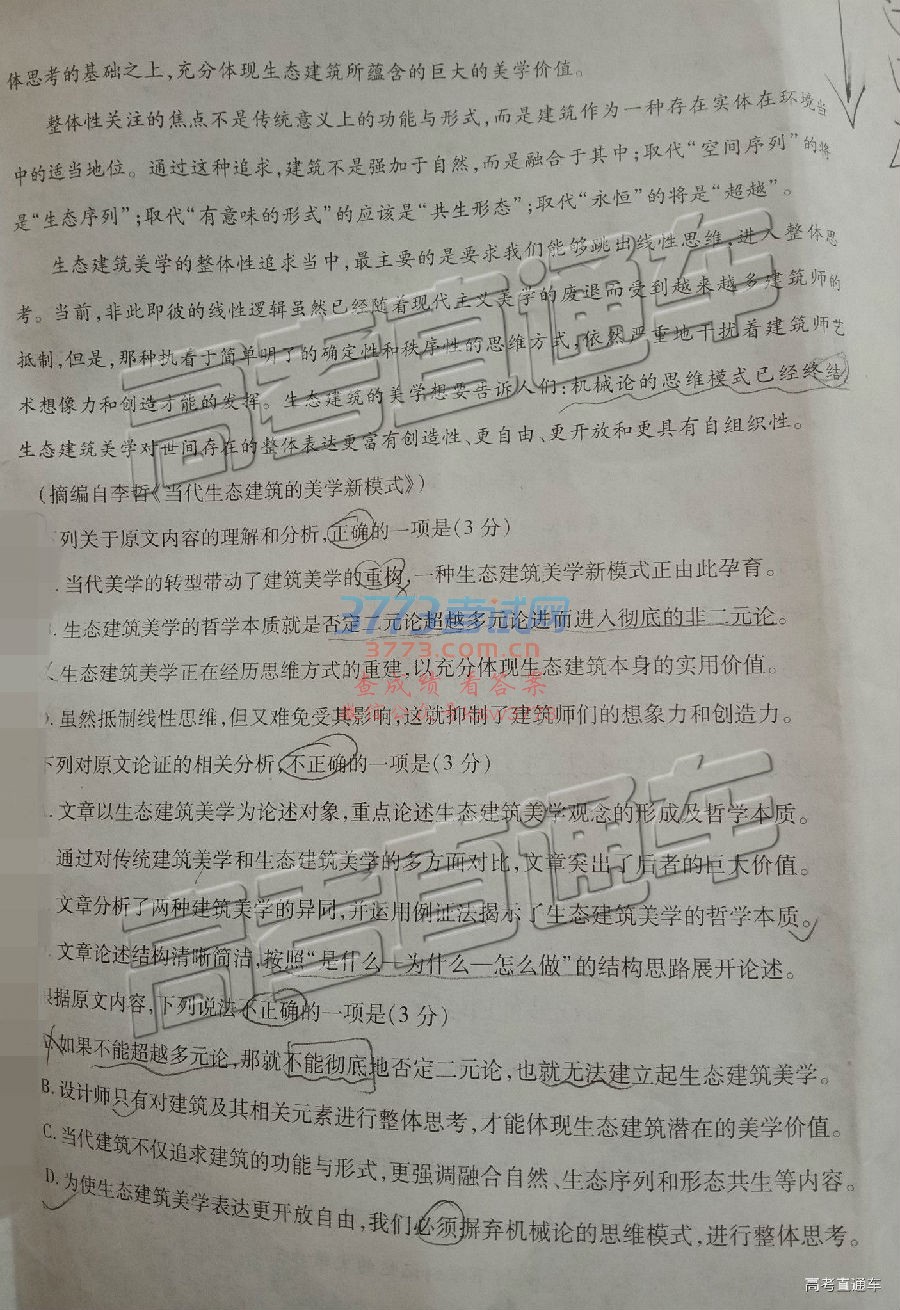 体思考的基础之上,充分体现生态建筑所蕴含的巨大的美学价值。
整体性关注的焦点不是传统意义上的功能与形式,而是建筑作为一种存在实体在环境当
中的适当地位。通过这种追求,建筑不是强加于自然,而是融合于其中;取代“空间序列”的将
是“生态序列”;取代“有意味的形式”的应该是“共生形态”;取代“永恒”的将是“超越”。
生态建筑美学的整体性追求当中,最主要的是要求我们能够跳出线性思维,进入整体思
考。当前,非此即彼的线性逻辑虽然已经随着现代主义美学的废退而受到越来越多建筑师的
抵制,但是,那种执着于简单明了的确定性和秩序性的思维方式,依然严重地干扰着建筑师艺
术想像力和创造才能的发挥。生态建筑的美学想要告诉人们:机械论的思维模式已经终结
生态建筑美学对世间存在的整体表达更富有创造性、更自由、更开放和更具有自组织性。
(摘编自李哲《当代生态建筑的美学新模式》)
下列关于原文内容的理解和分析,正确的一项是(3分)
.当代美学的转型带动了建筑美学的重构,一种生态建筑美学新模式正由此孕育。
B.生态建筑美学的哲学本质就是否定二元论超越多元论进而进入彻底的非二元论。
生态建筑美学正在经历思维方式的重建,以充分体现生态建筑本身的实用价值。
D.虽然抵制线性思维,但又难免受其影响,这就抑制了建筑师们的想象力和创造力。
下列对原文论证的相关分析,不正确的一项是(3分)
文章以生态建筑美学为论述对象,重点论述生态建筑美学观念的形成及哲学本质。
通过对传统建筑美学和生态建筑美学的多方面对比,文章突出了后者的巨大价值。
文章分析了两种建筑美学的异同,并运用例证法揭示了生态建筑美学的哲学本质。
文章论述结构清晰简洁,按照“是什么—为什么—怎么做”的结构思路展开论述。
根据原文内容,下列说法不正确的一项是(3分)
A.如果不能超越多元论,那就不能彻底地否定二元论,也就无法建立起生态建筑美学。
B.设计师只有对建筑及其相关元素进行整体思考,才能体现生态建筑潜在的美学价值。
C.当代建筑不仅追求建筑的功能与形式,更强调融合自然、生态序列和形态共生等内容。
D.为使生态建筑美学表达更开放自由,我们必须摒弃机械论的思维模式,进行整体思考。
高考直通车
3773考试网
3773.com.cn
查成绩 看答案
高考直通车
高考直通车